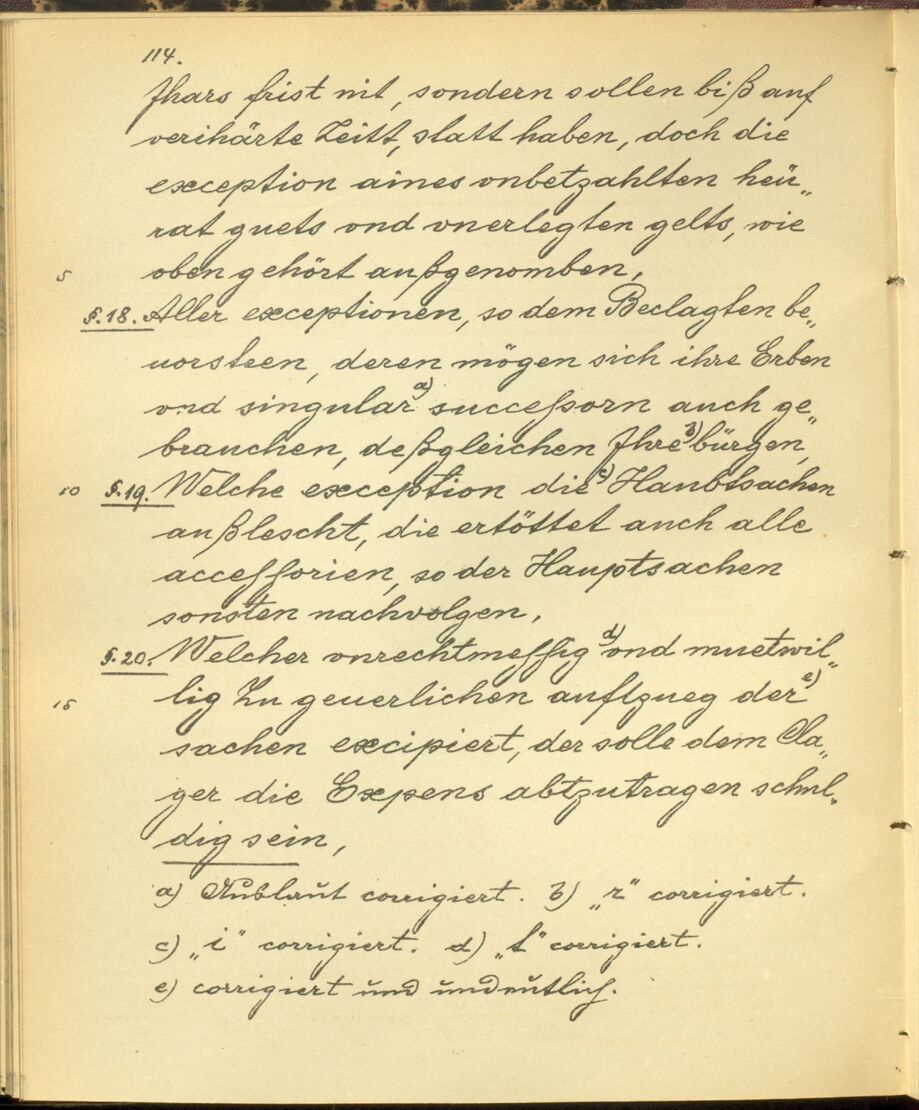 114.
Jhars frist nit, sondern sollen biß auf
verihärte Zeitt, statt haben, doch die
exception aines vnbetzahlten heü„
rat guets vnd vnerlegten gelts, wie
5 oben gehört außgenomben,
§. 18. Aller exceptionen, so dem Beclagten be„
uorsteen, deren mögen sich ihre Erben
vnd singular a) successorn auch ge„
brauchen, deßgleichen Jhre b) bürgen,
10 §. 19. Welche exception die c) Haubtsachen
außlescht, die ertöttet auch alle
accessorien, so der Hauptsachen
sonsten nachvolgen,
§. 20. Welcher vnrechtmessig d) vnd muetwil„
15 lig Zu geuerlichen auftzueg der e)
sachen excipiert, der solle dem Cla„
ger die Expens abtzutragen schul„
dig sein,
a) Auslaut corrigiert. b) „r" corrigiert.
c) „i" corrigiert. d) „t" corrigiert.
e) corrigiert und undeutlich.